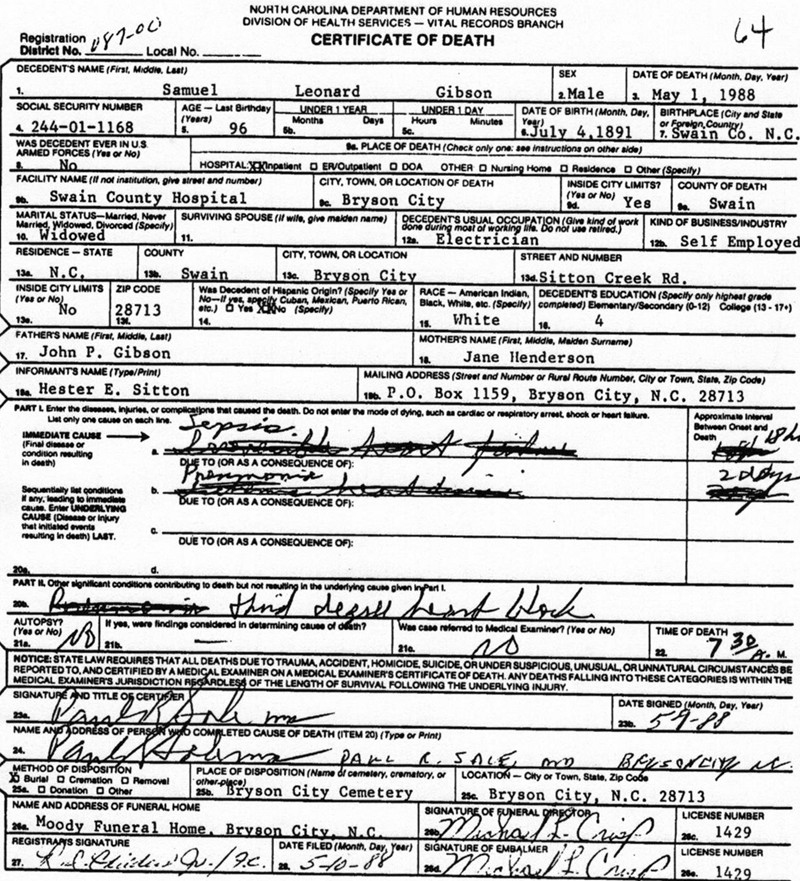 NORTH CAROLINA DEPARTMENT OF HUMAN RESOURCES
DIVISION OF HEALTH SERVICES — VITAL RECORDS BRANCH
CERTIFICATE OF DEATH
64
Registration District No. 087-00 Local No.
DECEDENT'S NAME (First, Middle, Last) SEX DATE OF DEATH (Month, Day, Year)
1. Samuel Leonard Gibson 2. Male 3. May 1, 1988
SOCIAL SECURITY NUMBER AGE — Last Birthday (Years) UNDER 1 YEAR Months Days UNDER 1 DAY Hours Minutes DATE OF BIRTH (Month, Day, Year) BIRTHPLACE (City and State or Foreign Country)
4. 244-01-1168 5. 96 5b. 5c. 6. July 4,1891 7. Swain Co. N.C.
WAS DECEDENT EVER IN U.S. ARMED FORCES (Yes or No) 9a. PLACE OF DEATH (Check only one: see instructions on other side)
8. No HOSPITAL: XX Inpatient ☐ ER/Outpatient ☐ DOA OTHER ☐ Nursing Home ☐ Residence ☐ Other (Specify)
FACILITY NAME (If not institution, give street and number) CITY, TOWN, OR LOCATION OF DEATH INSIDE CITY LIMITS? (Yes or No) COUNTY OF DEATH
9b. Swain County Hospital 9c. Bryson City 9d. Yes 9e. Swain
MARITAL STATUS—Married, Never Married, Widowed, Divorced (Specify) SURVIVING SPOUSE (If wife, give maiden name) DECEDENT'S USUAL OCCUPATION (Give kind of work done during most of working life. Do not use retired.) KIND OF BUSINESS/INDUSTRY
10. Widowed 11. 12a. Electrician 12b. Self Employed
RESIDENCE - STATE COUNTY CITY, TOWN, OR LOCATION STREET AND NUMBER
13a. N.C. 13b. Swain 13c. Bryson City 13d. Sitton Creek Rd.
INSIDE CITY LIMITS (Yes or No) ZIP CODE Was Decedent of Hispanic Origin? (Specify Yes or No—If yes, specify Cuban, Mexican, Puerto Rican, etc.) ☐ Yes XX No (Specify) RACE - American Indian, Black, White, etc. (Specify) DECEDENT'S EDUCATION (Specify only highest grade completed) Elementary/Secondary (0-12) College (13 - 17+)
13e. No 13f. 28713 14. 15. White 16. 4
FATHER'S NAME (First, Middle, Last) MOTHER'S NAME (First, Middle, Maiden Surname)
17. John P. Gibson 18. Jane Henderson
INFORMANT'S NAME (Type/Print) MAILING ADDRESS (Street and Number or Rural Route Number, City or Town, State, Zip Code)
19a. Hester E. Sitton 19b. P.O. Box 1159, Bryson City, N.C. 28713
PART I. Enter the diseases, injuries, or complications that caused the death. Do not enter the mode of dying, such as cardiac or respiratory arrest, shock or heart failure. List only one cause on each line. Approximate Interval Between Onset and Death
IMMEDIATE CAUSE (Final disease or condition resulting in death) a. Sepsis 18 hr
DUE TO (OR AS A CONSEQUENCE OF):
Sequentially list conditions if any, leading to immediate cause. Enter UNDERLYING CAUSE (Disease or injury that initiated events resulting in death) LAST.
b. Pneumonia 2 days
DUE TO (OR AS A CONSEQUENCE OF):
c.
DUE TO (OR AS A CONSEQUENCE OF):
20a. d.
PART II. Other significant conditions contributing to death but not resulting in the underlying cause given in Part I.
20b. third degree heart block
AUTOPSY? (Yes or No) If yes, were findings considered in determining cause of death? Was case referred to Medical Examiner? (Yes or No) TIME OF DEATH
21a. NO 21b. — 21c. NO 22. 7 30 A. M.
NOTICE: STATE LAW REQUIRES THAT ALL DEATHS DUE TO TRAUMA, ACCIDENT, HOMICIDE, SUICIDE, OR UNDER SUSPICIOUS, UNUSUAL, OR UNNATURAL CIRCUMSTANCES BE
REPORTED TO, AND CERTIFIED BY A MEDICAL EXAMINER ON A MEDICAL EXAMINER'S CERTIFICATE OF DEATH. ANY DEATHS FALLING INTO THESE CATEGORIES IS WITHIN THE
MEDICAL EXAMINER'S JURISDICTION REGARDLESS OF THE LENGTH OF SURVIVAL FOLLOWING THE UNDERLYING INJURY.
SIGNATURE AND TITLE OF CERTIFIER DATE SIGNED (Month, Day, Year)
23a. Paul R Sale MD 23b. 5-9-88
NAME AND ADDRESS OF PERSON WHO COMPLETED CAUSE OF DEATH (ITEM 20) (Type or Print)
24. PAUL R. SALE, MD BRYSON CITY N.C.
METHOD OF DISPOSITION PLACE OF DISPOSITION (Name of cemetery, crematory, or other place) LOCATION - City or Town, State, Zip Code
X Burial ☐ Cremation ☐ Removal
25a. ☐ Donation ☐ Other 25b. Bryson City Cemetery 25c. Bryson City, N.C. 28713
NAME AND ADDRESS OF FUNERAL HOME SIGNATURE OF FUNERAL DIRECTOR LICENSE NUMBER
26a. Moody Funeral Home, Bryson City, N.C. 26b. Michael L. Crisp 26c. 1429
REGISTRAR'S SIGNATURE DATE FILED (Month, Day, Year) SIGNATURE OF EMBALMER LICENSE NUMBER
27. 28. 5-10-88 26d. Michael L. Crisp 26e. 1429